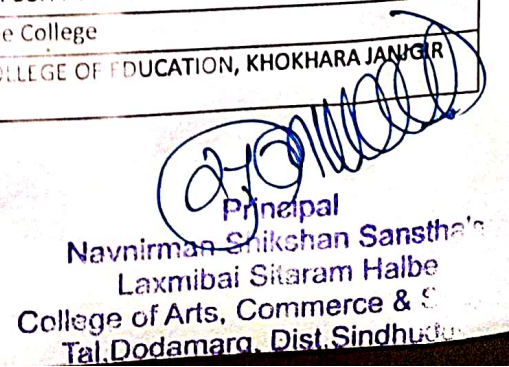 e College
LLEGE OF EDUCATION, KHOKHARA JANJGIR
Principal
Navnirman Shikshan Sanstha's
Laxmibai Sitaram Halbe
College of Arts, Commerce &
Tal.Dodamarg, Dist.Sindhudu